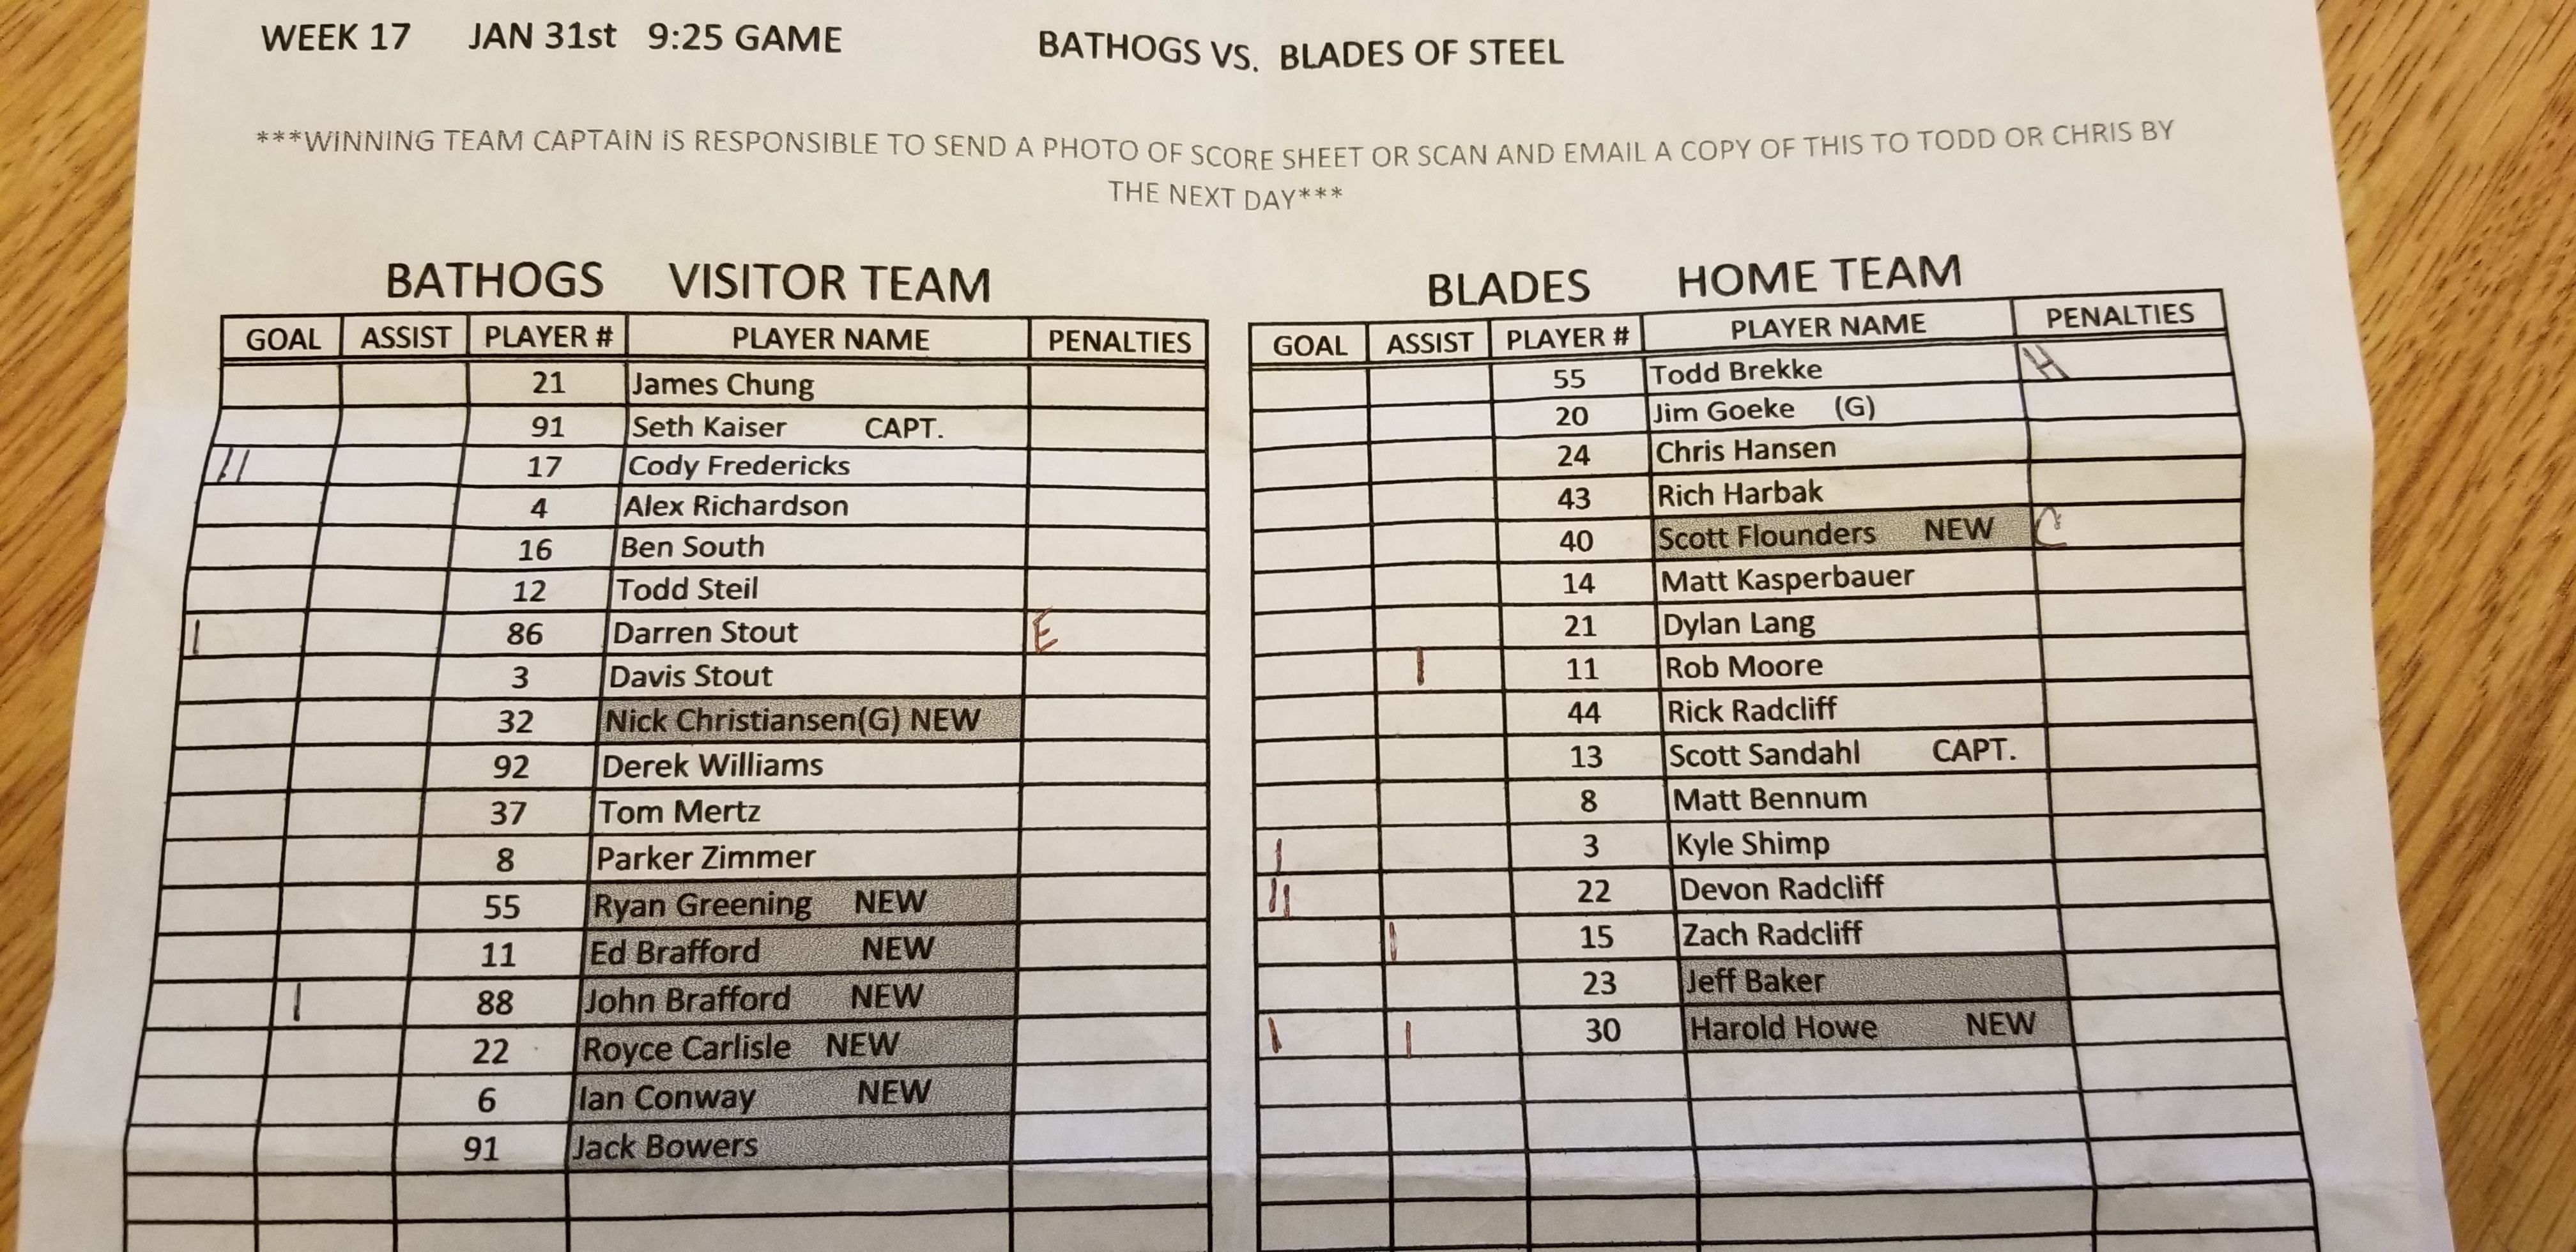 WEEK 17 JAN 31st 9:25 GAME BATHOGS VS. BLADES OF STEEL
***WINNING TEAM CAPTAIN IS RESPONSIBLE TO SEND A PHOTO OF SCORE SHEET OR SCAN AND EMAIL A COPY OF THIS TO TODD OR CHRIS BY
THE NEXT DAY***
BATHOGS VISITOR TEAM
GOAL ASSIST PLAYER # PLAYER NAME PENALTIES
21 James Chung
91 Seth Kaiser CAPT.
11 17 Cody Fredericks
4 Alex Richardson
16 Ben South
12 Todd Steil
1 86 Darren Stout E
3 Davis Stout
32 Nick Christiansen(G) NEW
92 Derek Williams
37 Tom Mertz
8 Parker Zimmer
55 Ryan Greening NEW
11 Ed Brafford NEW
1 88 John Brafford NEW
22 Royce Carlisle NEW
6 Ian Conway NEW
91 Jack Bowers
BLADES HOME TEAM
GOAL ASSIST PLAYER # PLAYER NAME PENALTIES
55 Todd Brekke H
20 Jim Goeke (G)
24 Chris Hansen
43 Rich Harbak
40 Scott Flounders NEW C
14 Matt Kasperbauer
21 Dylan Lang
1 11 Rob Moore
44 Rick Radcliff
13 Scott Sandahl CAPT.
8 Matt Bennum
1 3 Kyle Shimp
11 22 Devon Radcliff
1 15 Zach Radcliff
23 Jeff Baker
1 1 30 Harold Howe NEW